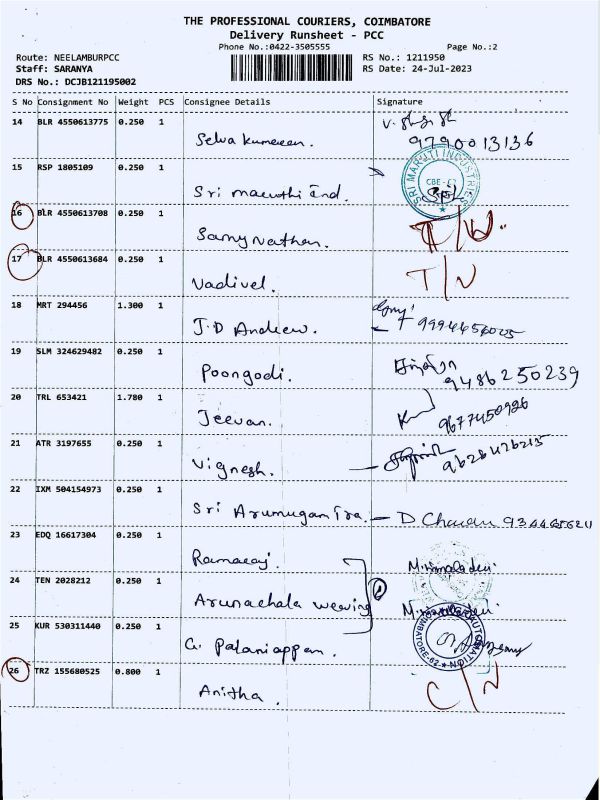 THE PROFESSIONAL COURIERS, COIMBATORE
Delivery Runsheet - PCC
Phone No.:0422-3505555 Page No.:2
Route: NEELAMBURPCC RS No.: 1211950
Staff: SARANYA RS Date: 24-Jul-2023
DRS No.: DCJB121195002
S No Consignment No Weight PCS Consignee Details Signature
14 BLR 4550613775 0.250 1
Selva kumaran. 9790013136
15 RSP 1805109 0.250 1
Sri maruthi Ind. SRI MARUTI INDUSTRIES
16 BLR 4550613708 0.250 1
Samynathan.
17 BLR 4550613684 0.250 1
Vadivel. T/N
18 MRT 294456 1.300 1
J.D Andrew.
19 SLM 324629482 0.250 1
Poongodi. 9486250239
20 TRL 653421 1.780 1
Jeevan. 9677450926
21 ATR 3197655 0.250 1
Vignesh.
22 IXM 504154973 0.250 1
Sri Arumugam Tra.
23 EDQ 16617304 0.250 1
Ramaraj.
24 TEN 2028212 0.250 1
Arunachala weaving
25 KUR 530311440 0.250 1
G. Palaniappan.
26 TRZ 155680525 0.800 1
Anitha. C/N